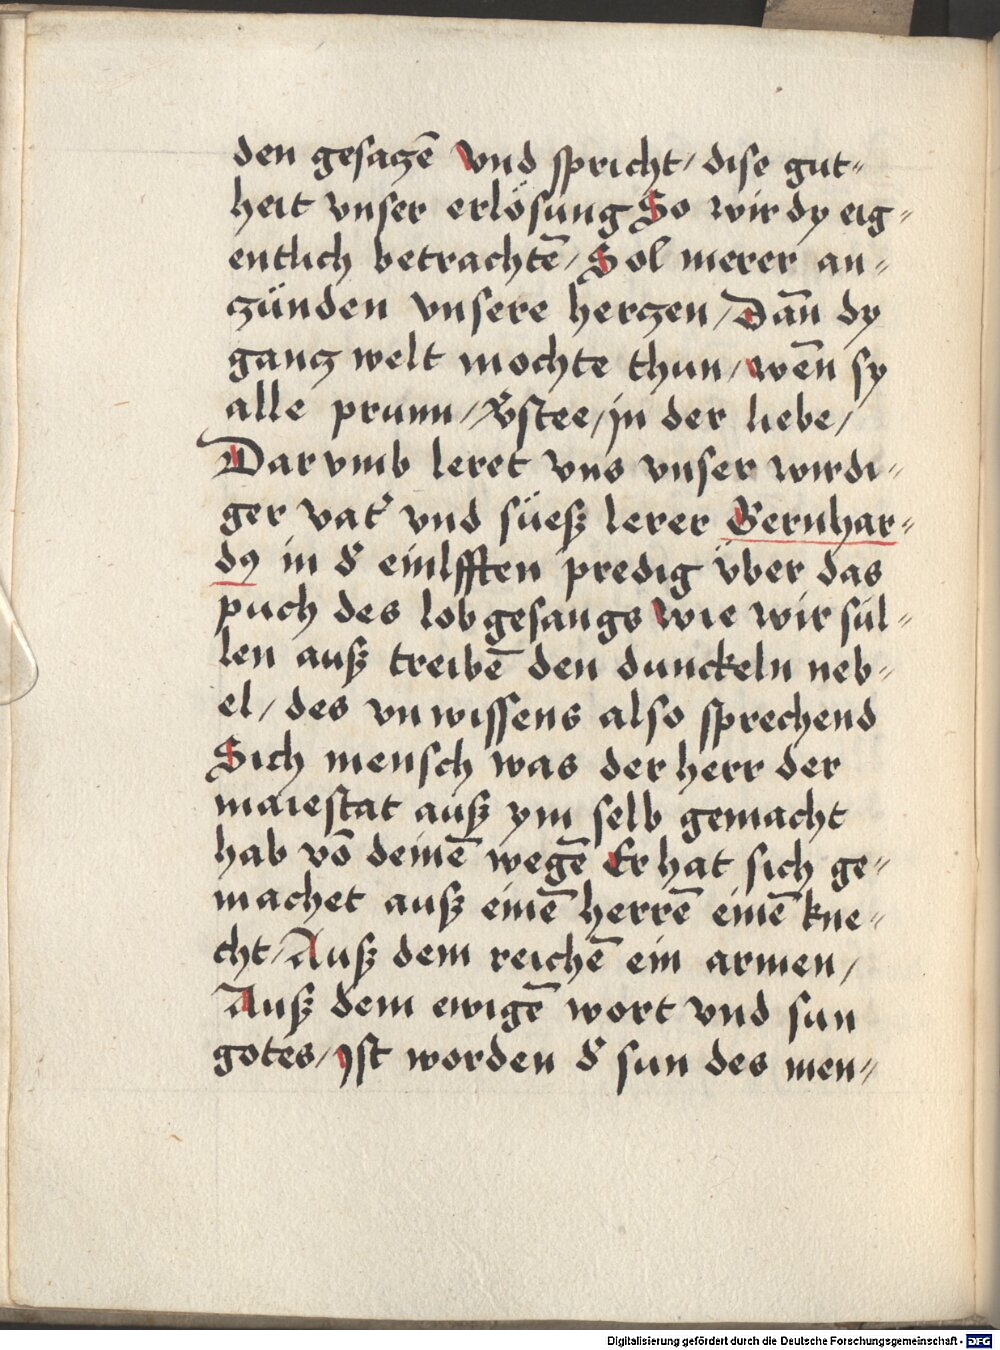 den gesagẽ Vnd spricht / dise gut⸗
heit vnser erlösung So wir dy eig⸗
entlich betrachtẽ / Sol merer an⸗
zünden vnsere herczen / Dañ dy
gancz welt mochte thun / wẽn sy
alle prunn / in der liebe /
Dar vmb leret vns vnser wirdi⸗
ger vat͛ vnd süeß lerer Bernhar⸗
dꝰ in d͛ einlfften predig über das
puch des lob gesangs wie wir sül⸗
len auß treibẽ den dunckeln neb⸗
el / des vnwissens also sprechend
Sich mensch was der herr der
maiestat auß ym selb gemacht
hab võ deinẽ wegẽ Er hat sich ge⸗
machet auß einẽ herrẽ einẽ kne⸗
cht / Auß dem reichẽ ein armen /
Auß dem ewigẽ wort vnd sun
gotes / Ist worden d͛ sun des men⸗
Digitalisierung gefördert durch die Deutsche Forschungsgemeinschaft - DFG